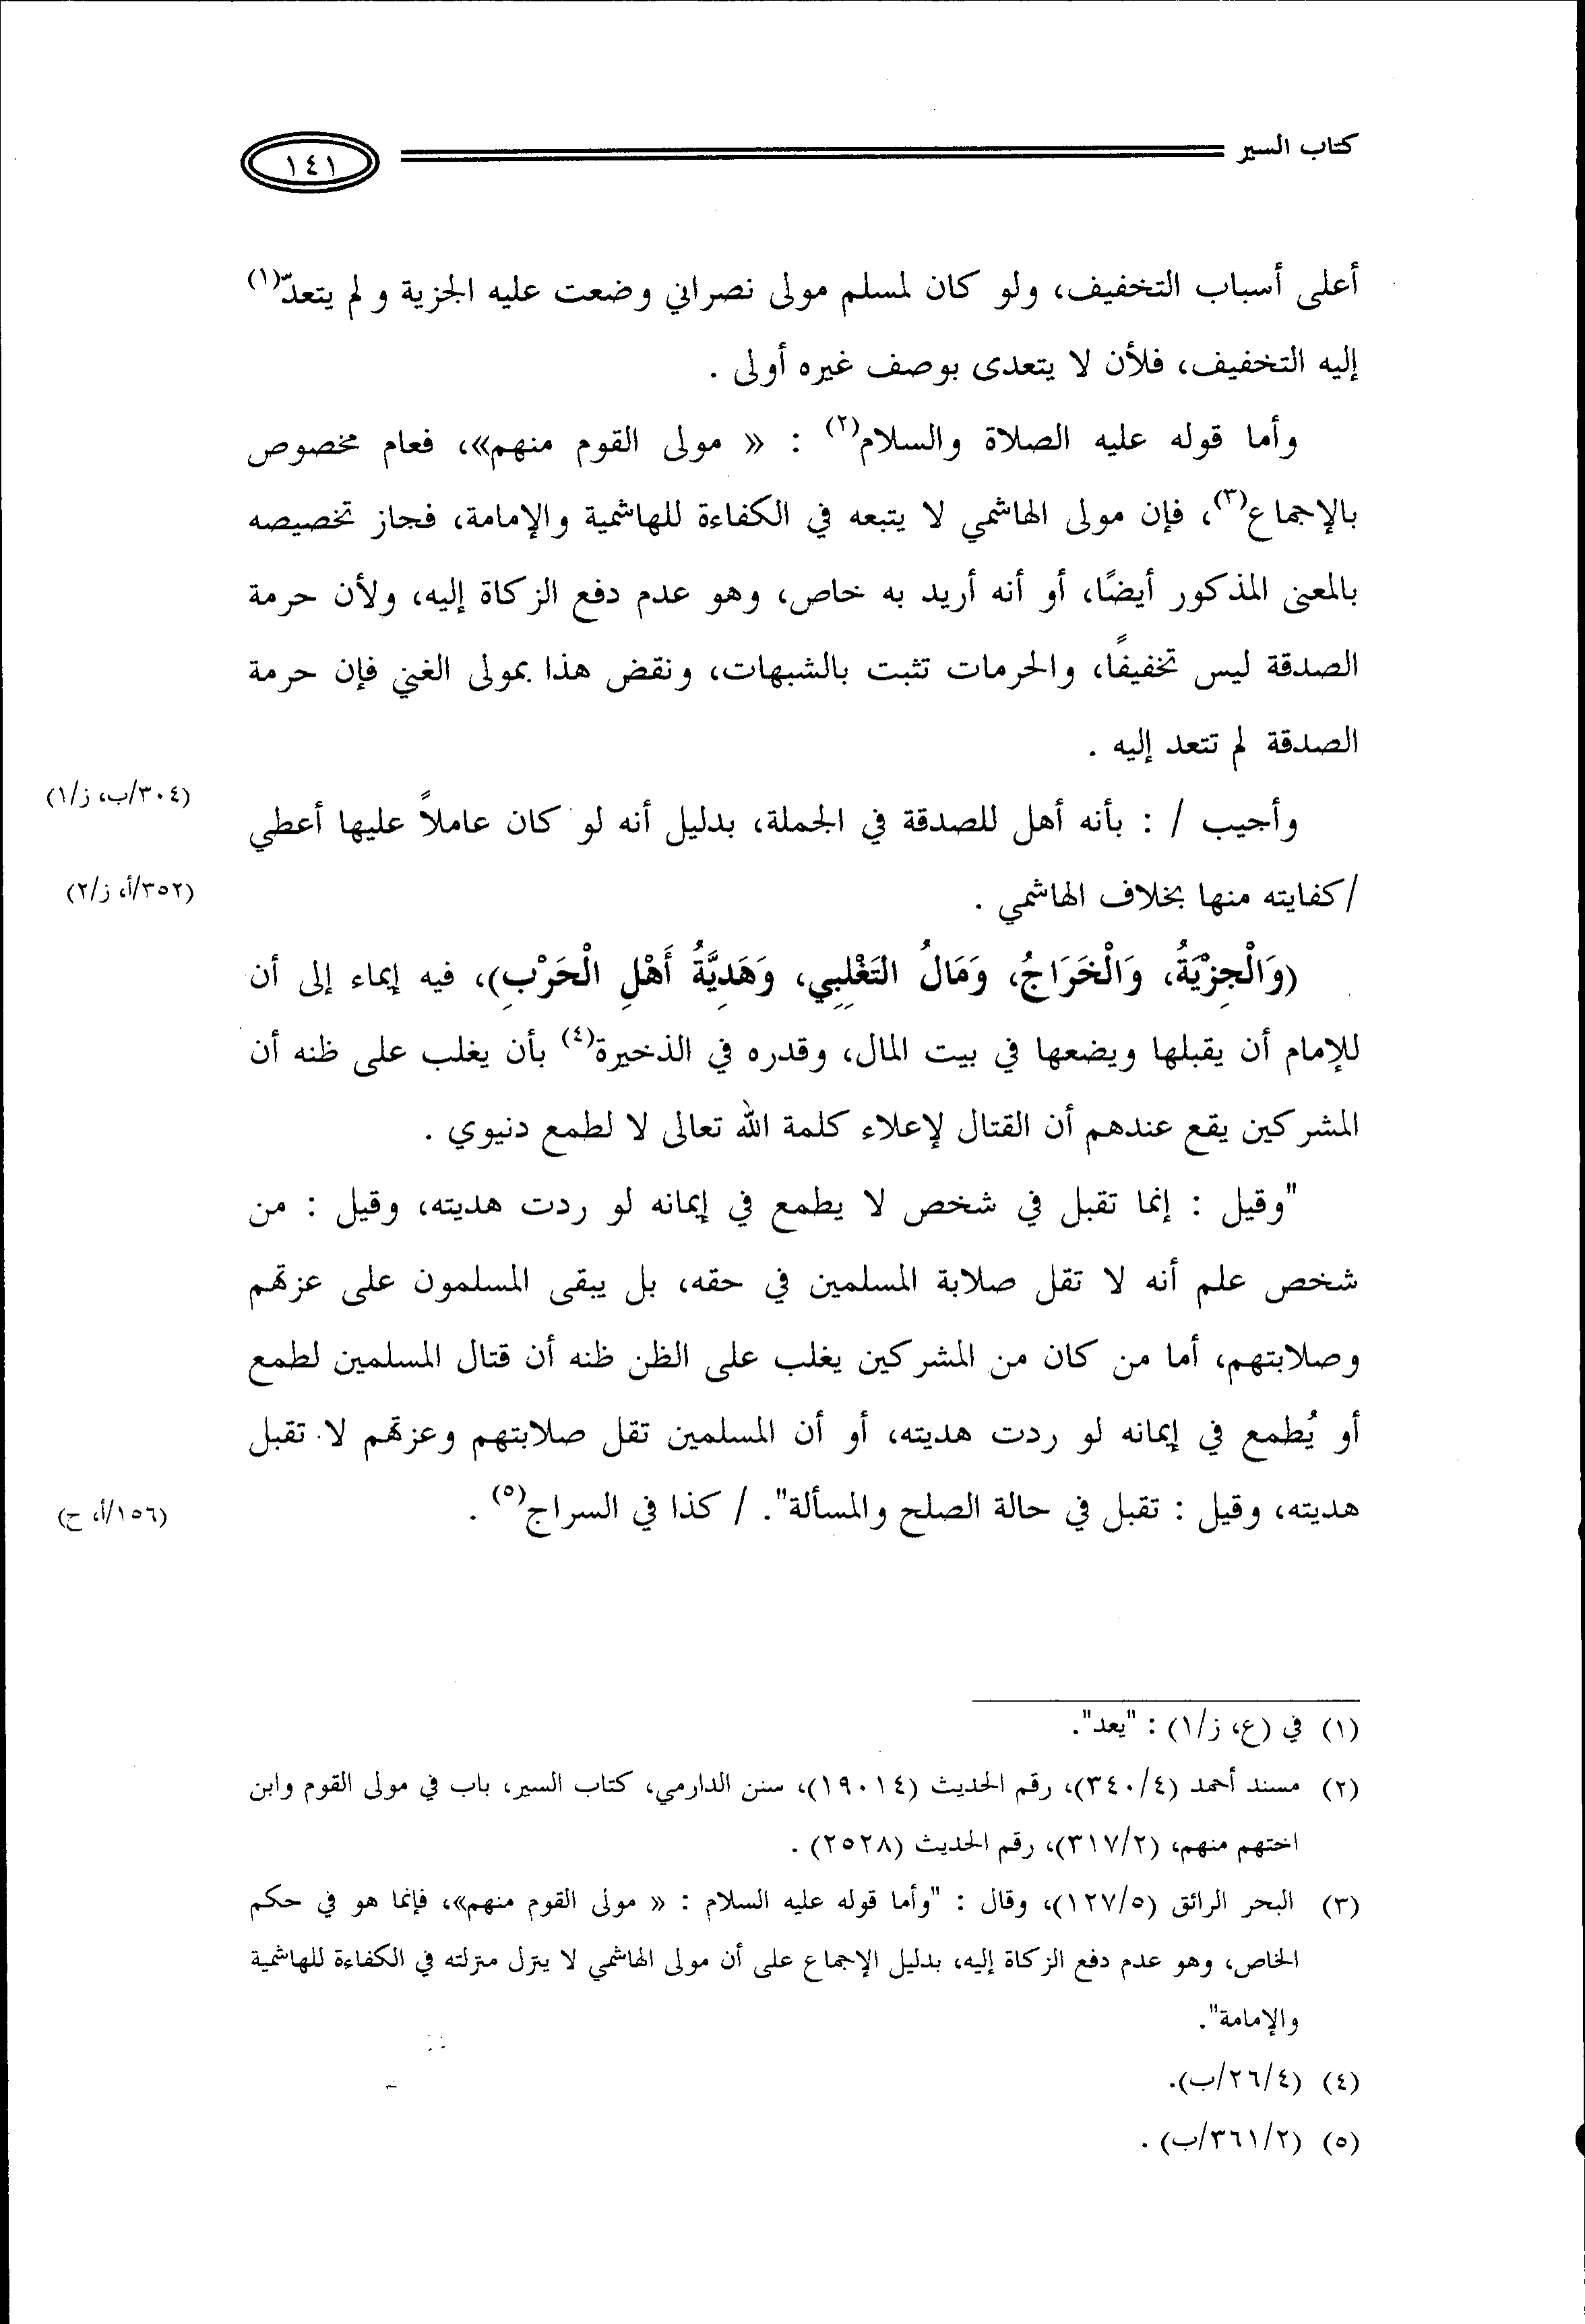 كتاب السير ١٤١
أعلى أسباب التخفيف، ولو كان لمسلم مولى نصراني وضعت عليه الجزية ولم يتعدّ(١)
إليه التخفيف، فلأن لا يتعدى بوصف غيره أولى .
وأما قوله عليه الصلاة والسلام(٢) : « مولى القوم منهم»، فعام مخصوص
بالإجماع(٣)، فإن مولى الهاشمي لا يتبعه في الكفاءة للهاشمية والإمامة، فجاز تخصيصه
بالمعنى المذكور أيضًا، أو أنه أريد به خاص، وهو عدم دفع الزكاة إليه، ولأن حرمة
الصدقة ليس تخفيفًا، والحرمات تثبت بالشبهات، ونقض هذا بمولى الغني فإن حرمة
الصدقة لم تتعد إليه .
(٣٠٤/ب، ز/١)
وأجيب / : بأنه أهل للصدقة في الجملة، بدليل أنه لو كان عاملاً عليها أعطي
(٣٥٢/أ، ز/٢)
/كفايته منها بخلاف الهاشمي .
(وَالْجِزْيَةُ، وَالْخَرَاجُ، وَمَالُ التَغْلِبِي، وَهَدِيَّةُ أَهْلِ الْحَرْبِ)، فيه إيماء إلى أن
للإمام أن يقبلها ويضعها في بيت المال، وقدره في الذخيرة(٤) بأن يغلب على ظنه أن
المشركين يقع عندهم أن القتال لإعلاء كلمة الله تعالى لا لطمع دنيوي .
"وقيل : إنما تقبل في شخص لا يطمع في إيمانه لو ردت هديته، وقيل : من
شخص علم أنه لا تقل صلابة المسلمين في حقه، بل يبقى المسلمون على عزتهم
وصلابتهم، أما من كان من المشركين يغلب على الظن ظنه أن قتال المسلمين لطمع
أو يُطمع في إيمانه لو ردت هديته، أو أن المسلمين تقل صلابتهم وعزتهم لا تقبل
هديته، وقيل : تقبل في حالة الصلح والمسألة". / كذا في السراج(٥) .
(١٥٦/أ، ح)
(١) في (ع، ز/١) : "يعد".
(٢) مسند أحمد (٣٤٠/٤)، رقم الحديث (١٩٠١٤)، سنن الدارمي، كتاب السير، باب في مولى القوم وابن
اختهم منهم، (٣١٧/٢)، رقم الحديث (٢٥٢٨) .
(٣) البحر الرائق (١٢٧/٥)، وقال : "وأما قوله عليه السلام : « مولى القوم منهم»، فإنما هو في حكم
الخاص، وهو عدم دفع الزكاة إليه، بدليل الإجماع على أن مولى الهاشمي لا ينزل منزلته في الكفاءة للهاشمية
والإمامة".
(٤) (٢٦/٤/ب).
(٥) (٣٦١/٢/ب) .